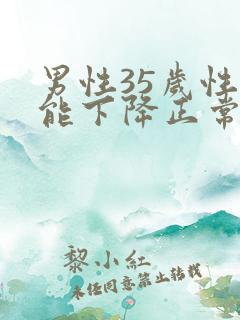 男性35歲性
能下降正常
黎小紅
未經同意禁止轉載